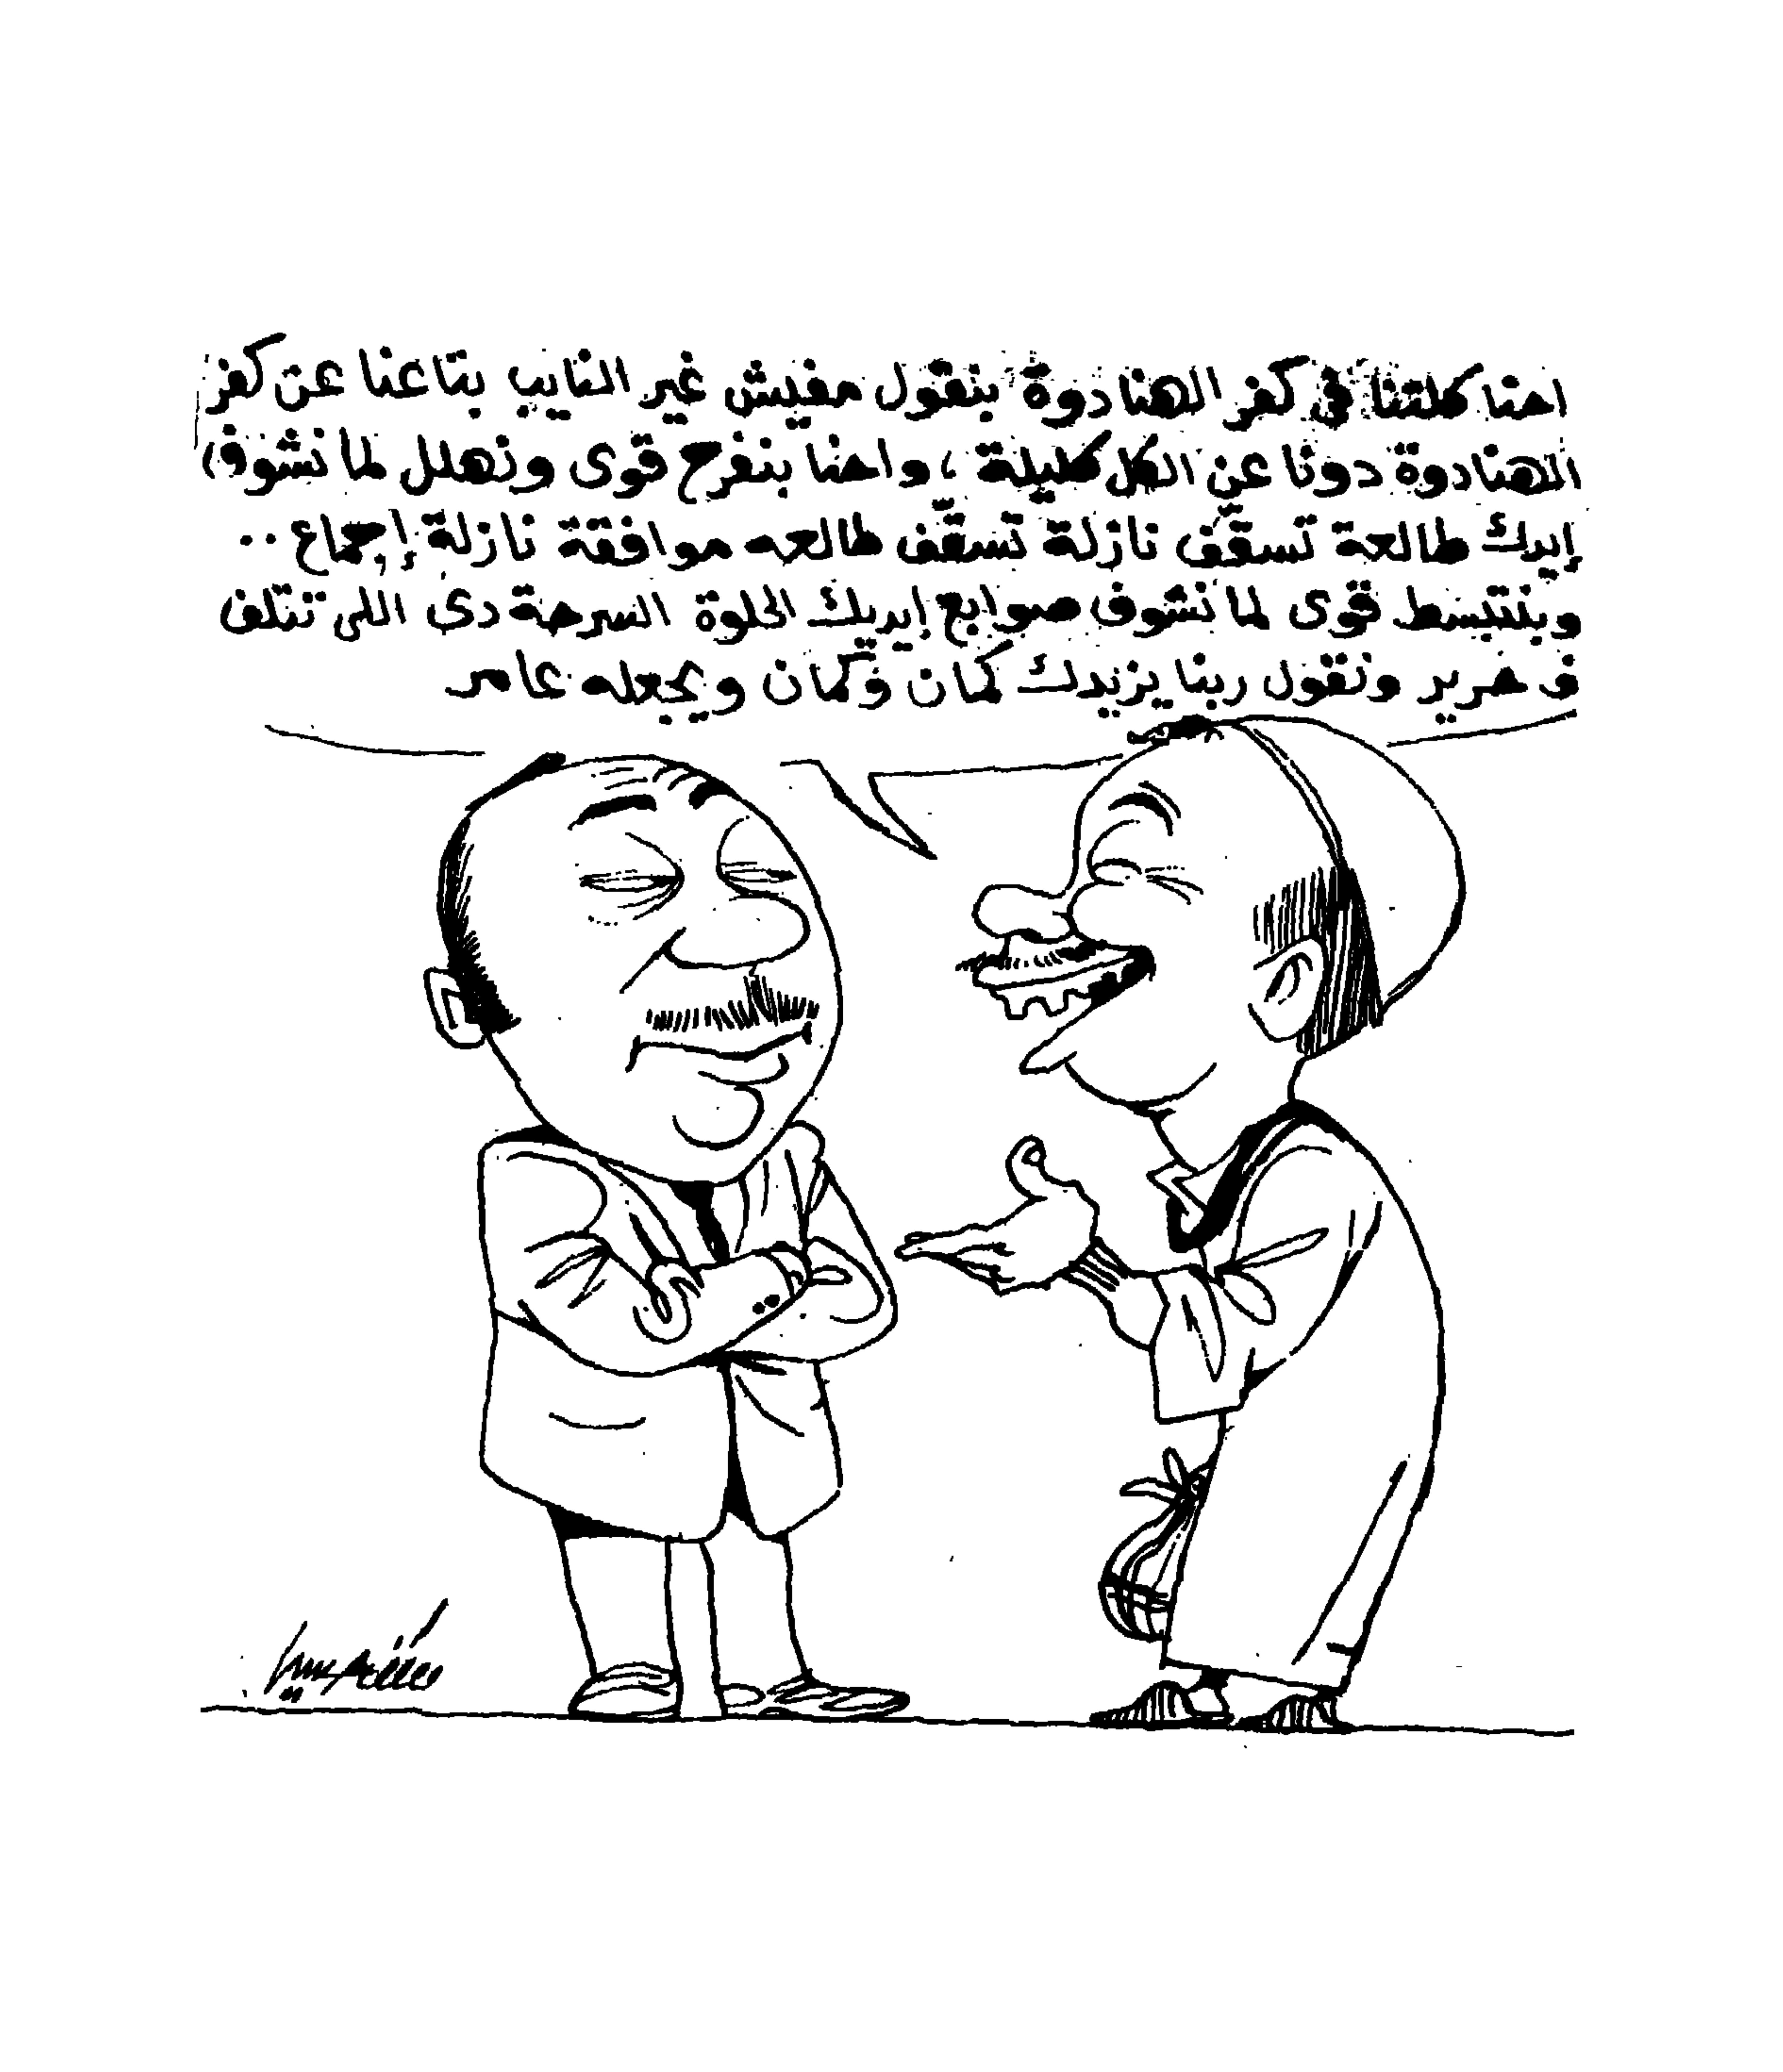 احنا كلتنا في كفر الهنادوة بنقول مفيش غير النايب بتاعنا عن كفر
الهنادوة دونا عن الكل كليلة ، واحنا بنفرح قوى ونهلل لما نشوف
إيدك طالعة تسقف نازلة تسقف طالعه موافقة نازلة إجماع ..
وبنتبسط قوى لما نشوف صوابع إيديك الحلوة السرحة دى اللى تتلف
ف حرير ونقول ربنا يزيدك كمان وكمان ويجعله عامر